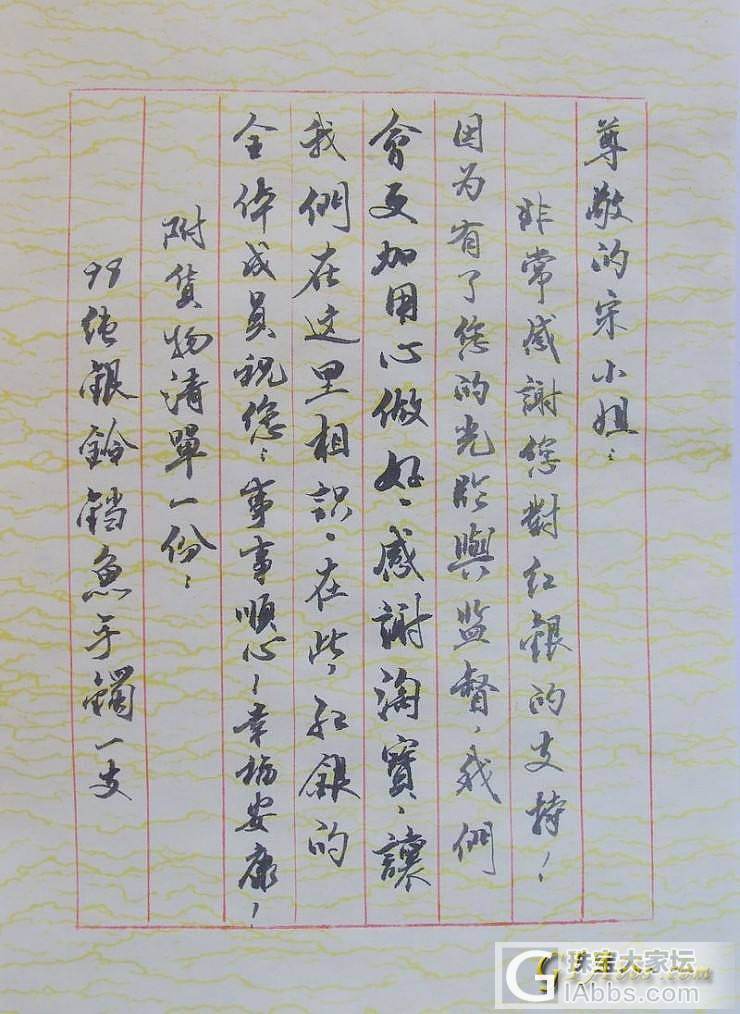 尊敬的宋小姐：
非常感謝您對红銀的支持！
因为有了您的光临與监督，我們
會更加用心做好。感謝淘寳，讓
我們在这里相识。在此，红銀的
全体成員祝您：事事順心！幸福安康！
附貨物清單一份：
99纯銀鈴鐺魚手鐲一支
珠宝大家坛
GIAbbs.com